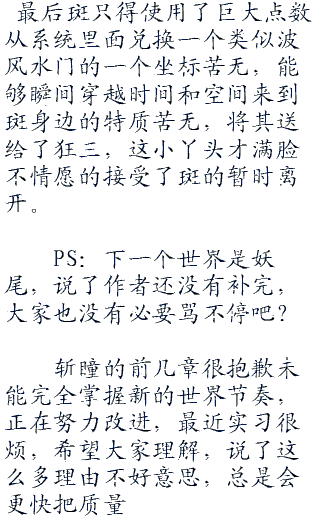 最后斑只得使用了巨大点数
从系统里面兑换一个类似波
风水门的一个坐标苦无，能
够瞬间穿越时间和空间来到
斑身边的特质苦无，将其送
给了狂三，这小丫头才满脸
不情愿的接受了斑的暂时离
开。
PS：下一个世界是妖
尾，说了作者还没有补完，
大家也没有必要骂不停吧？
斩瞳的前几章很抱歉未
能完全掌握新的世界节奏，
正在努力改进，最近实习很
烦，希望大家理解，说了这
么多理由不好意思，总是会
更快把质量